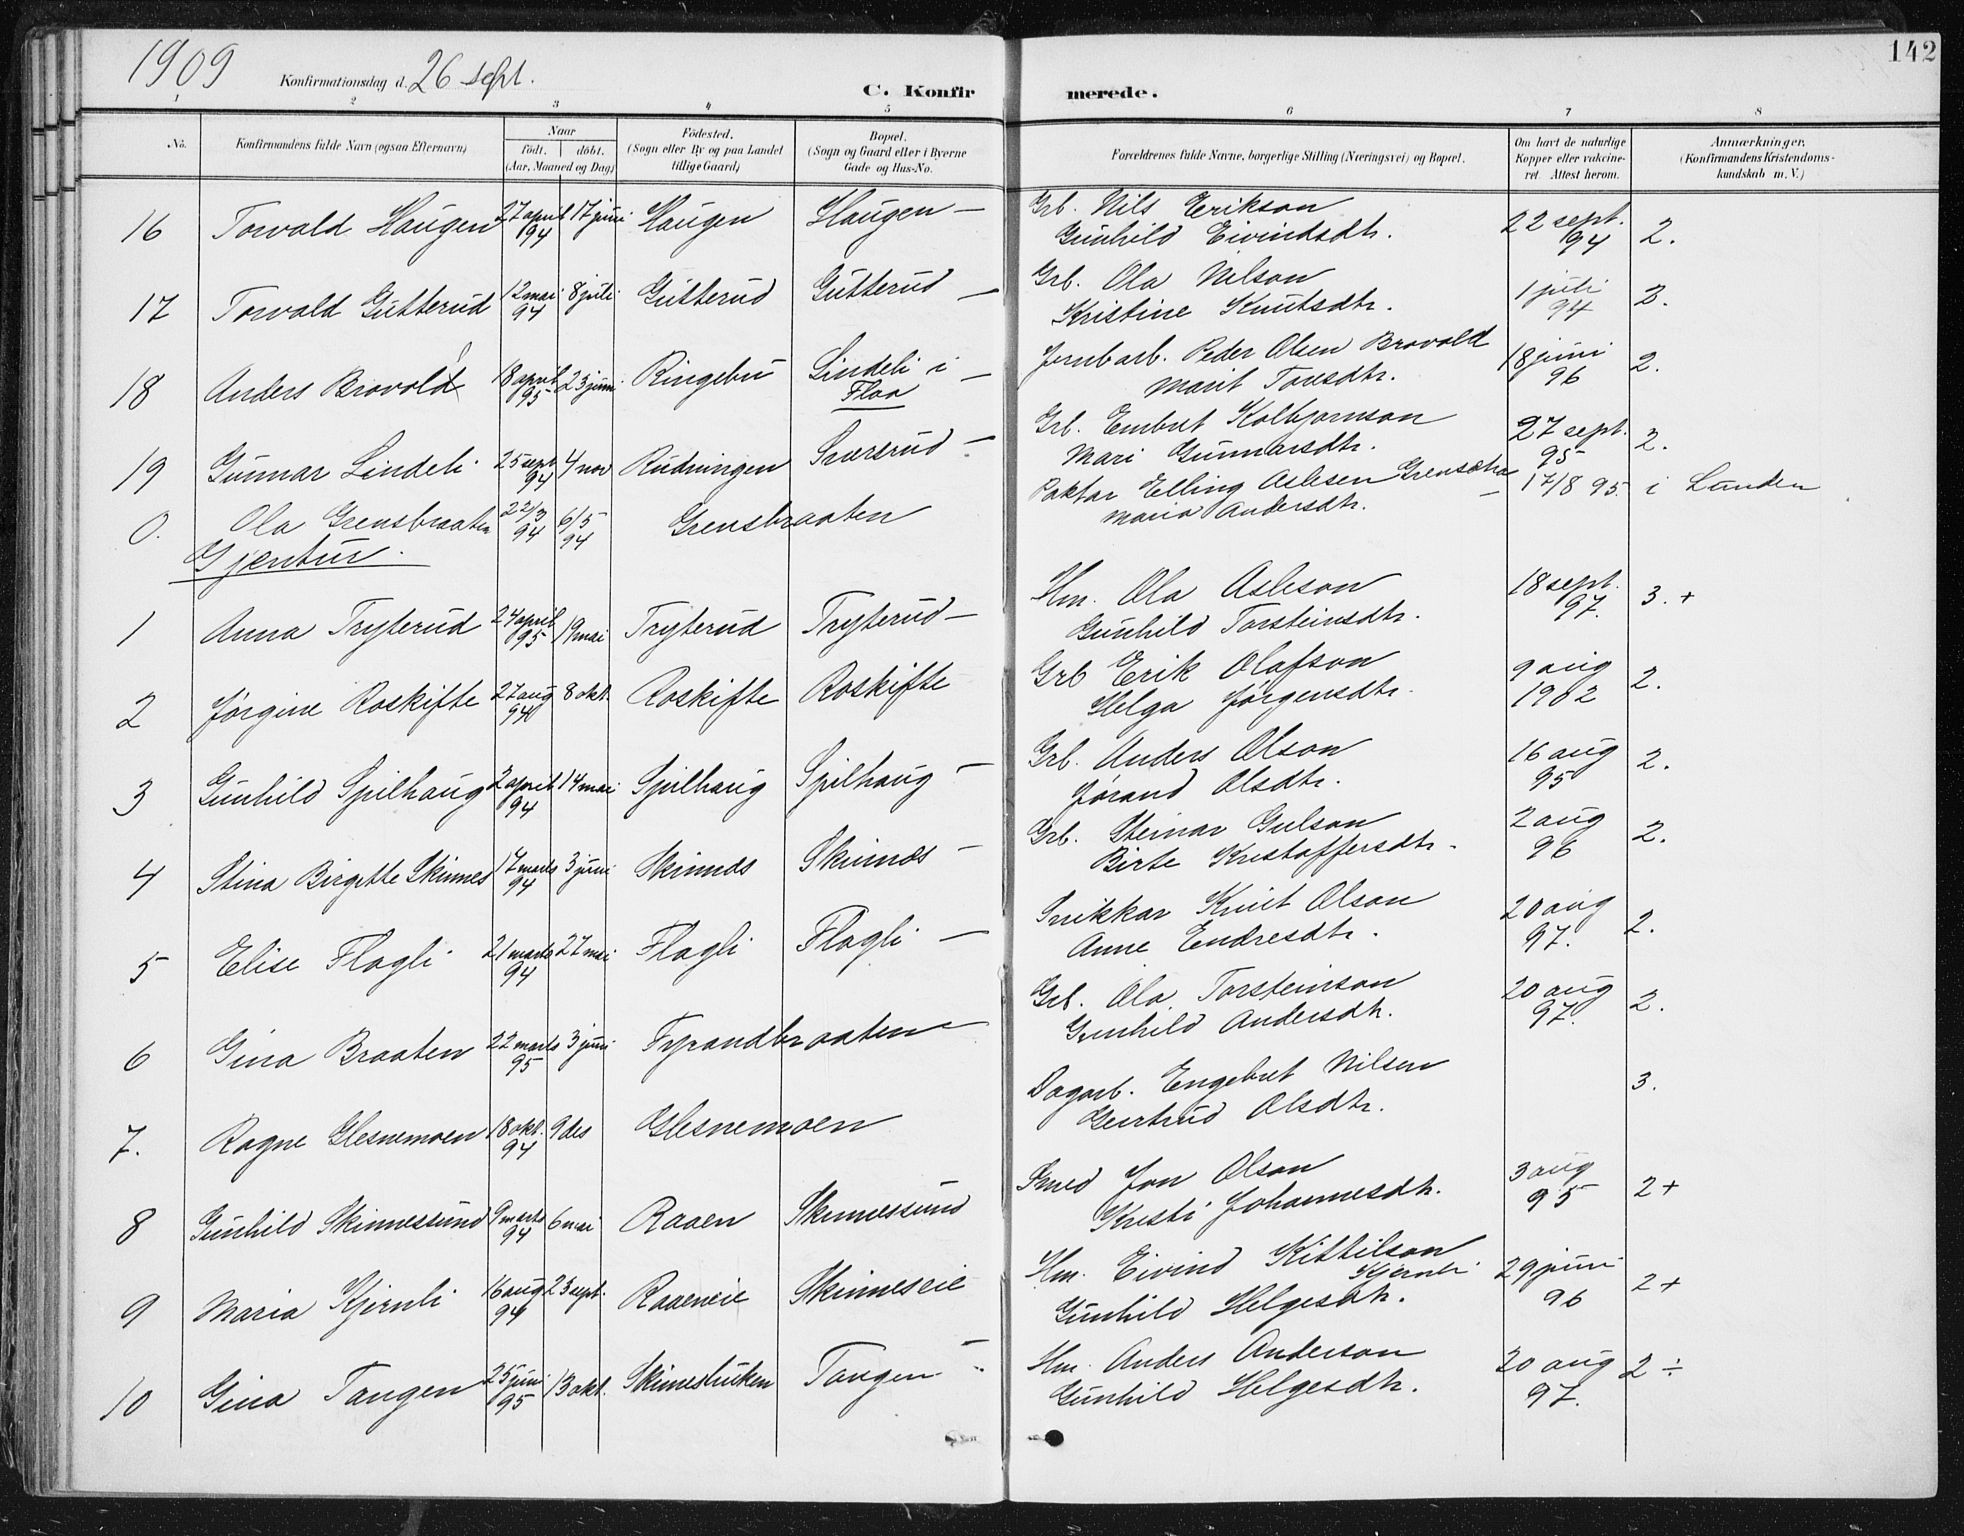 1909 Konfirmationsdag d. 26 sept. C. Konfirmerede. 142
1 2 3 4 5 6 7 8
No. Konfirmandens fulde Navn (ogsaa Efternavn) Naar født. døbt. (Aar, Maaned og Dag) Fødested. (Sogn eller By og paa Landet tillige Gaard) Bopæl. (Sogn og Gaard eller i Byerne Gade og Hus-No. Forældrenes fulde Navne, borgerlige Stilling (Næringsvei) og Bopæl. Om havt de naturlige Kopper eller vakcineret. Attest herom. Anmærkninger. (Konfirmandens Kristendomskundskab m. V.)
16 Torvald Haugen 27 april 94 17 juni Haugen Haugen — Grb. Nils Erikson 22 sept. 94 2.
Gunhild Eivindsdtr.
17 Torvald Gutterud 12 mai 94 8 juli Gutterud Gutterud — Grb. Ola Nilson 1 juli 94 2.
Kristine Knutsdtr.
18 Anders Brovold 18 april 95 23 juni Ringebu Lindeli i Flaa — Jernbarb. Peder Olsen Brovold 18 juni 96 2.
Marit Toresdtr.
19 Gunnar Lindeli 25 sept 94 4 nov Rudningen Sversrud — Grb. Embret Kolbjørnson 27 sept. 95 2.
Mari Gunnarsdtr.
0. Ola Grensbraaten 22/3 94 6/5 94 Grensbraaten Paktar Elling Aslesen 17/8 95. i Lunden
Maria Andersdtr.
Gjentur
1 Anna Tryterud 24 april 95 19 mai Tryterud Tryterud — Hm. Ola Asleson 18 sept. 97. 3. +
Gunhild Torsteinsdtr.
2 Jørgine Roskifte 27 aug 94 8 okt. Roskifte Roskifte Grb Erik Olafson 9 aug 1902 2.
Helga Jørgensdtr.
3 Gunhild Spilhaug 2 april 94 14 mai Spilhaug Spilhaug — Grb. Anders Olson 16 aug 95 2.
Jørand Olsdtr.
4 Stina Birgitte Skinnes 17 marts 94 3 juni Skinnes Skinnes — Grb. Steinar Gulson 2 aug 96 2.
Birte Kristoffersdtr.
5 Elise Flagli 21 marts 94 27 mai Flagli Flagli — Snikkar Knut Olson 20 aug 97. 2.
Anne Endresdtr.
6 Gina Braaten 22 marts 95 3 juni Tyrandbraaten Grb. Ola Torsteinson 20 aug 97. 2.
Gunhild Andersdtr.
7. Ragne Glesnemoen 18 okt. 94 9 des Glesnemoen Dagarb. Engebret Nilsen 3.
Gertrud Olsdtr.
8 Gunhild Skinnessund 9 marts 94 6 mai Raaen Skinnessund Smed Jon Olson 3 aug 95 2 +
Kristi Johannesdtr.
9 Maria Kjernli 16 aug 94 23 sept. Raaeneie Skinneseie Hm. Eivind Kittilson Kjernli 29 juni 96 2 +
Gunhild Helgesdtr.
10 Gina Tangen 25 juni 95 13 okt. Tangen — Hm. Anders Anderson 20 aug 97. 2 ÷
Gunhild Helgesdtr.